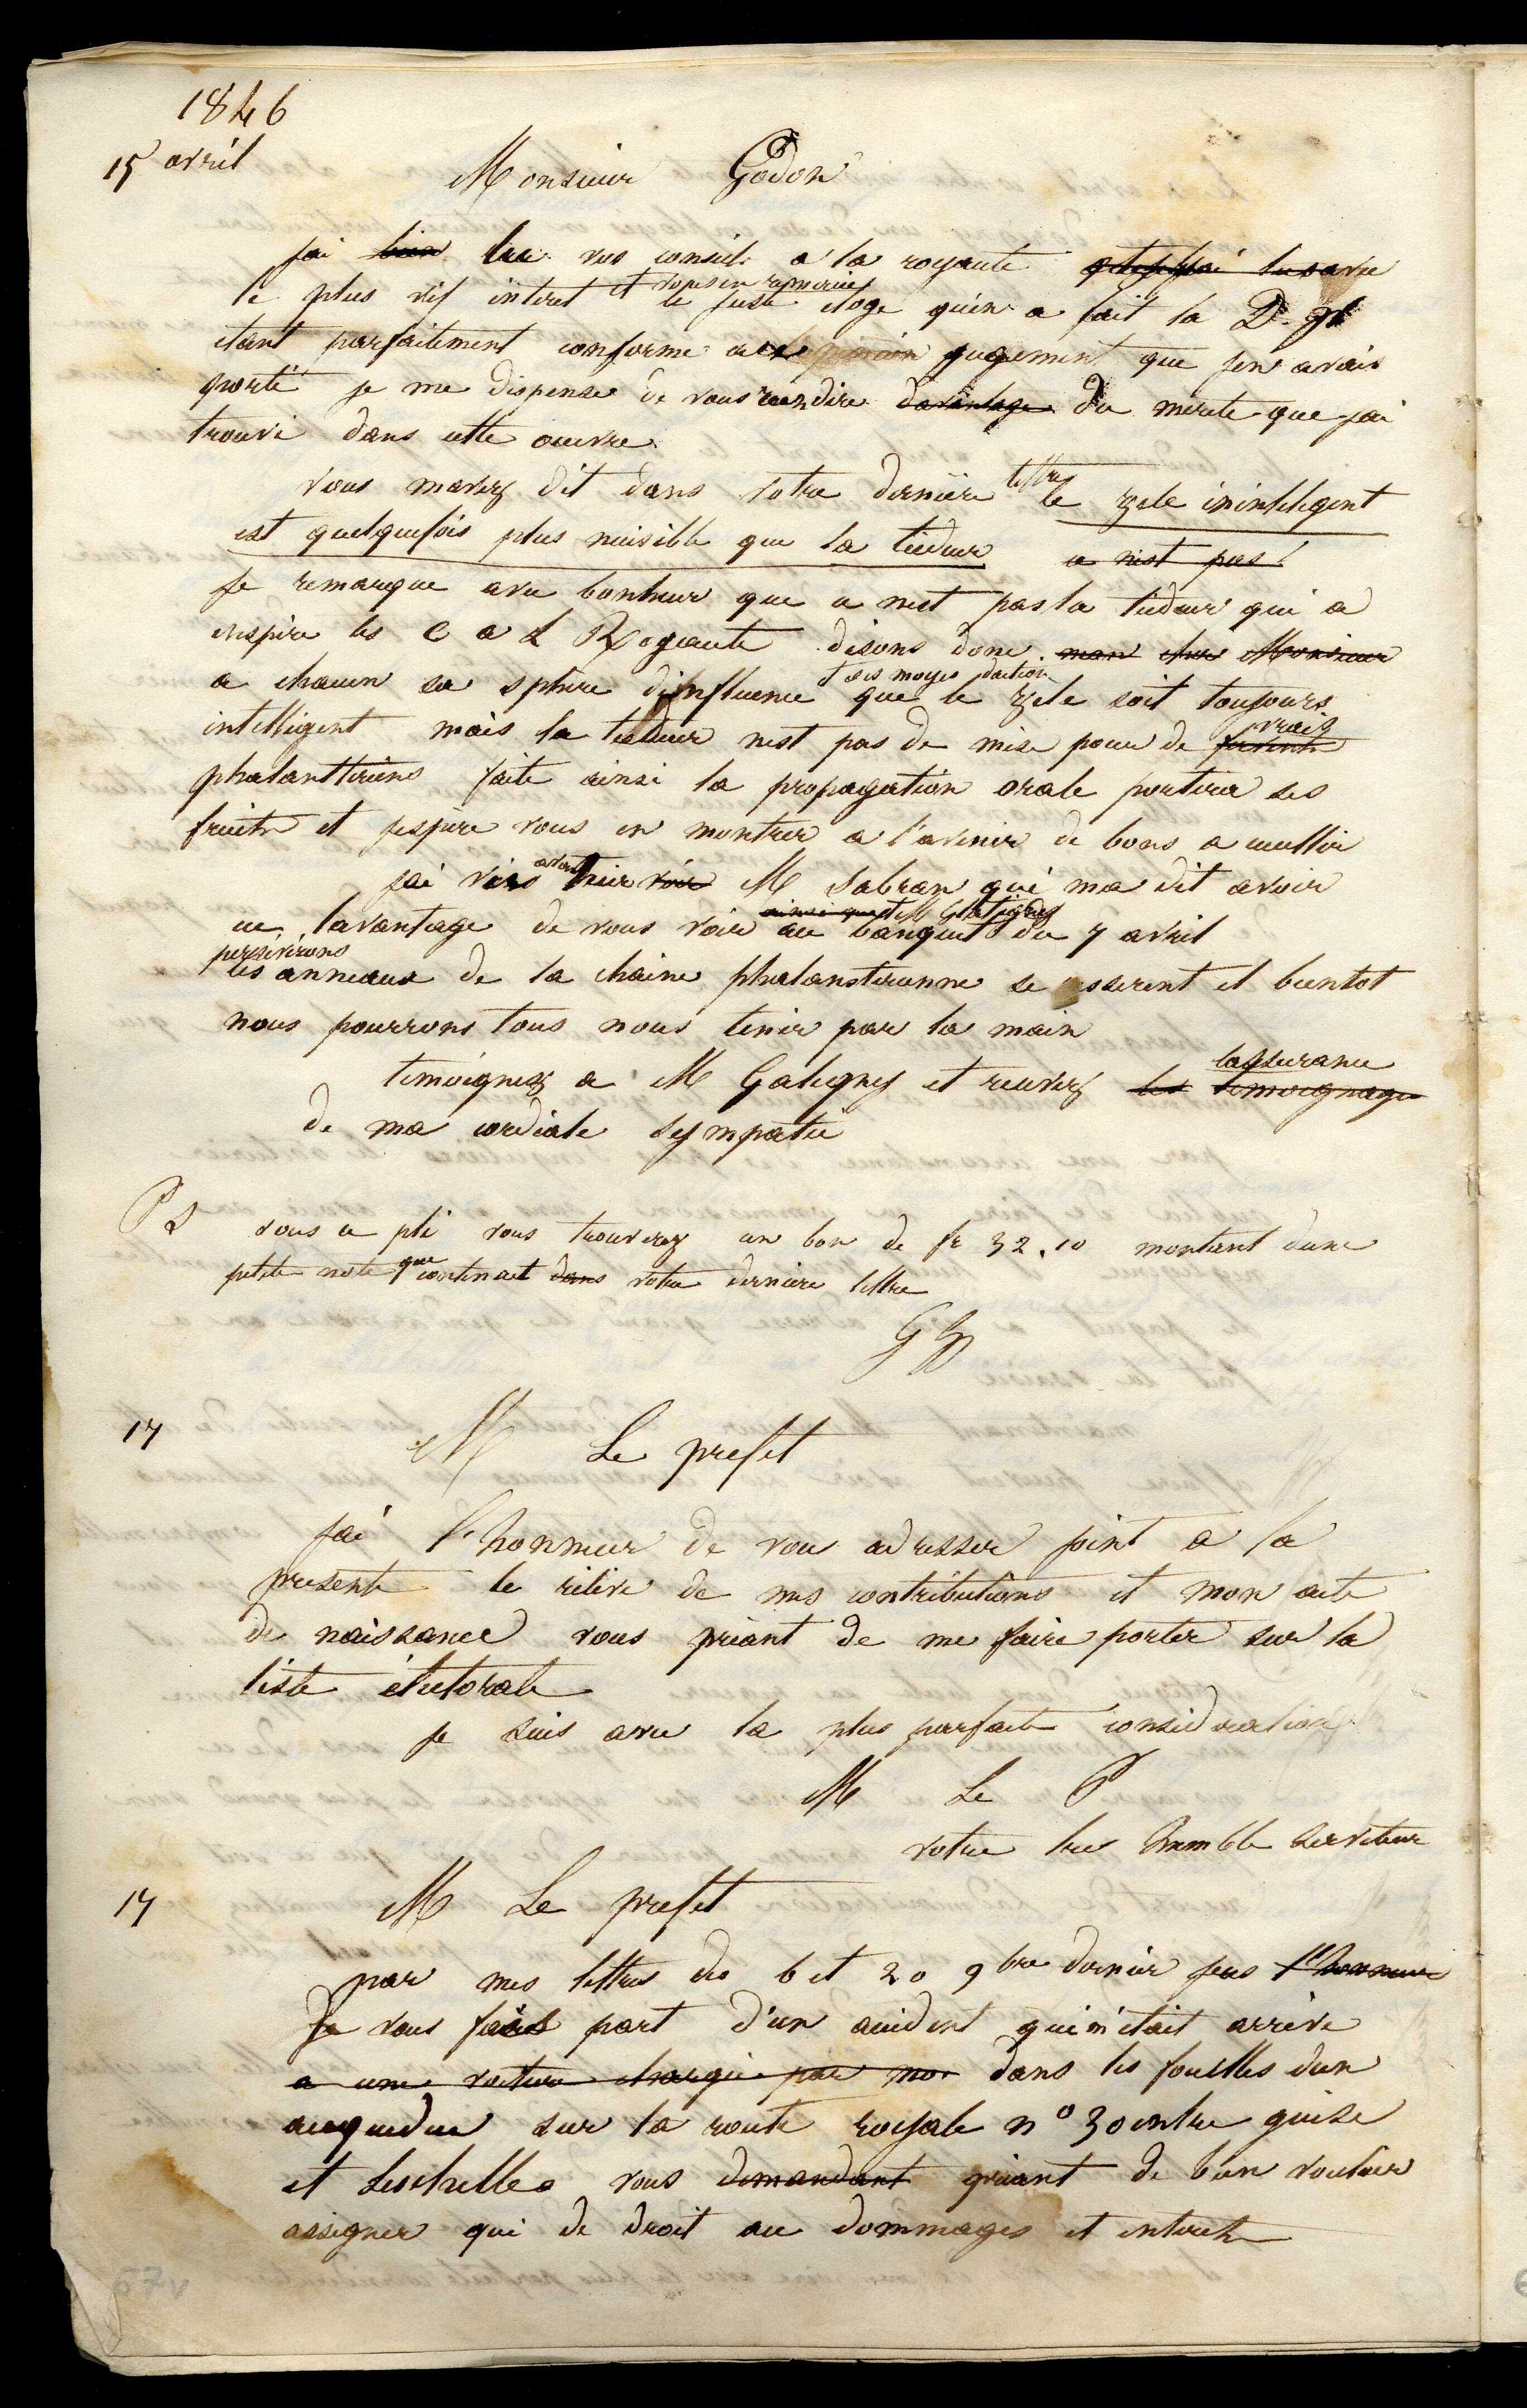 1846
15 avril
Monsieur Godon
jai bien lu vos conseils a la royauté avec
le plus vif interet et vous en remercie le juste eloge qu'en a fait la D. p
étant parfaitement conforme au jugement que jen avais
porté je me dispense de vous rien dire davantage du merite que jai
trouvé dans cette œuvre.
vous mavez dit dans votre dernière lettre le zele inintelegent
est quelquefois plus nuisible que la tiedeur ce n'est pas!
Je remarque avec bonheur que ce nest pas la tiedeur qui a
inspiré les C a L Royauté disons donc mon cher Monsieur
a chacun sa sphère d'influence et ses moyens daction que le zele soit toujours
intelligent mais la tiedeur nest pas de mise pour de fervents vrais
phalanstériens faite ainsi la propagation orale portera ses
fruits et jespère vous en montrer a l'avenir de bons a cueillir
jai vu avant hier M Sabran qui ma dit avoir
eu lavantage de vous voir ainsi que et M Galigny au banquet du 7 avril
persévérons
les anneaux de la chaine phalansterienne se resserrent et bientot
nous pourrons tous nous tenir par la main
temoignez a M Galigny et recevez les temoignages lassurance
de ma cordiale sympatie
P S sous ce pli vous trouverez un bon de fr 32.10 montant dune
petite note que contenait dans votre derniere lettre
G
17
M Le prefet
jai l'honneur de vous adresser joint a la
presente le relevé de mes contributions et mon acte
de naissance vous priant de me faire porter sur la
liste électorale
je suis avec la plus parfaite consideration
M Le P
votre tres humble serviteur
17
M Le prefet
par mes lettres des 6 et 20 9bre dernier l'honneur
Je vous fais part d'un accident qui m'etait arrivé
a une voiture chargée par moi dans les fouilles dun
acqueduc sur la route royale n° 30 entre guise
et Leschelles vous demandant priant de bien vouloir
assigner qui de droit au dommages et interets
67v